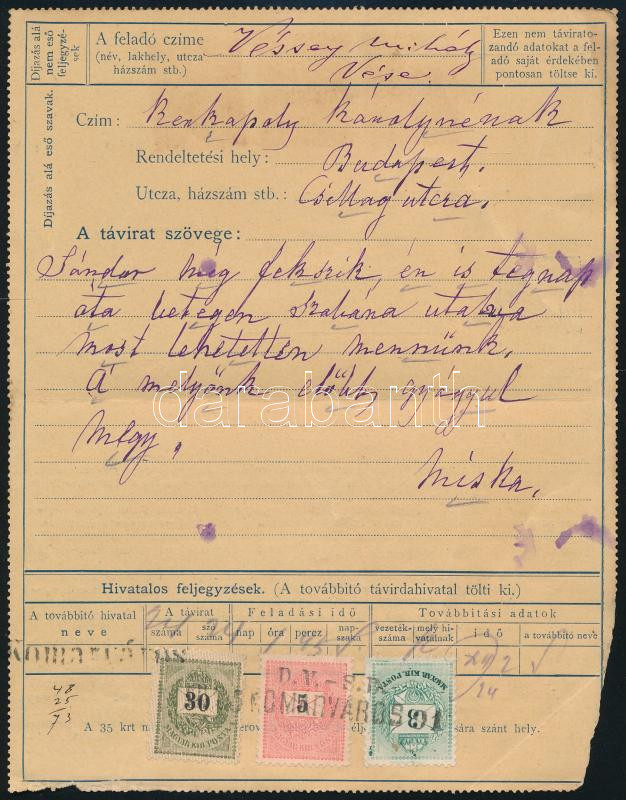 Díjazás alá nem eső feljegyzések
A feladó czime
(név, lakhely, utcza házszám stb.)
Vésey Mihály
Vése.
Ezen nem táviratozandó adatokat a feladó saját érdekében pontosan töltse ki.
Díjazás alá eső szavak.
Czím: Kerkapoly Károlynénak
Rendeltetési hely: Budapest.
Utcza, házszám stb.: Csillag utcza.
A távirat szövege:
Sándor még fekszik, én is tegnap
óta betegen szobána utalva
most lehetetlen mennünk.
A melyönk előbb gyógyul
megy.
Miska.
darabanth
Hivatalos feljegyzések. (A továbbitó távirdahivatal tölti ki.)
A továbbitó hivatal neve
A távirat
száma
szó száma
Feladási idő
nap
óra
perez
napszaka
Továbbitási adatok
vezetékszáma
mely hivatalnak
idő
a továbbitó neve
30
MAGYAR KIR. POSTA
5
MAGYAR KIR. POSTA
MAGYAR KIR. POSTA
D.V.-S.
KOMÁRVÁROS
48
25
73
A 35 krt
sára szánt hely.